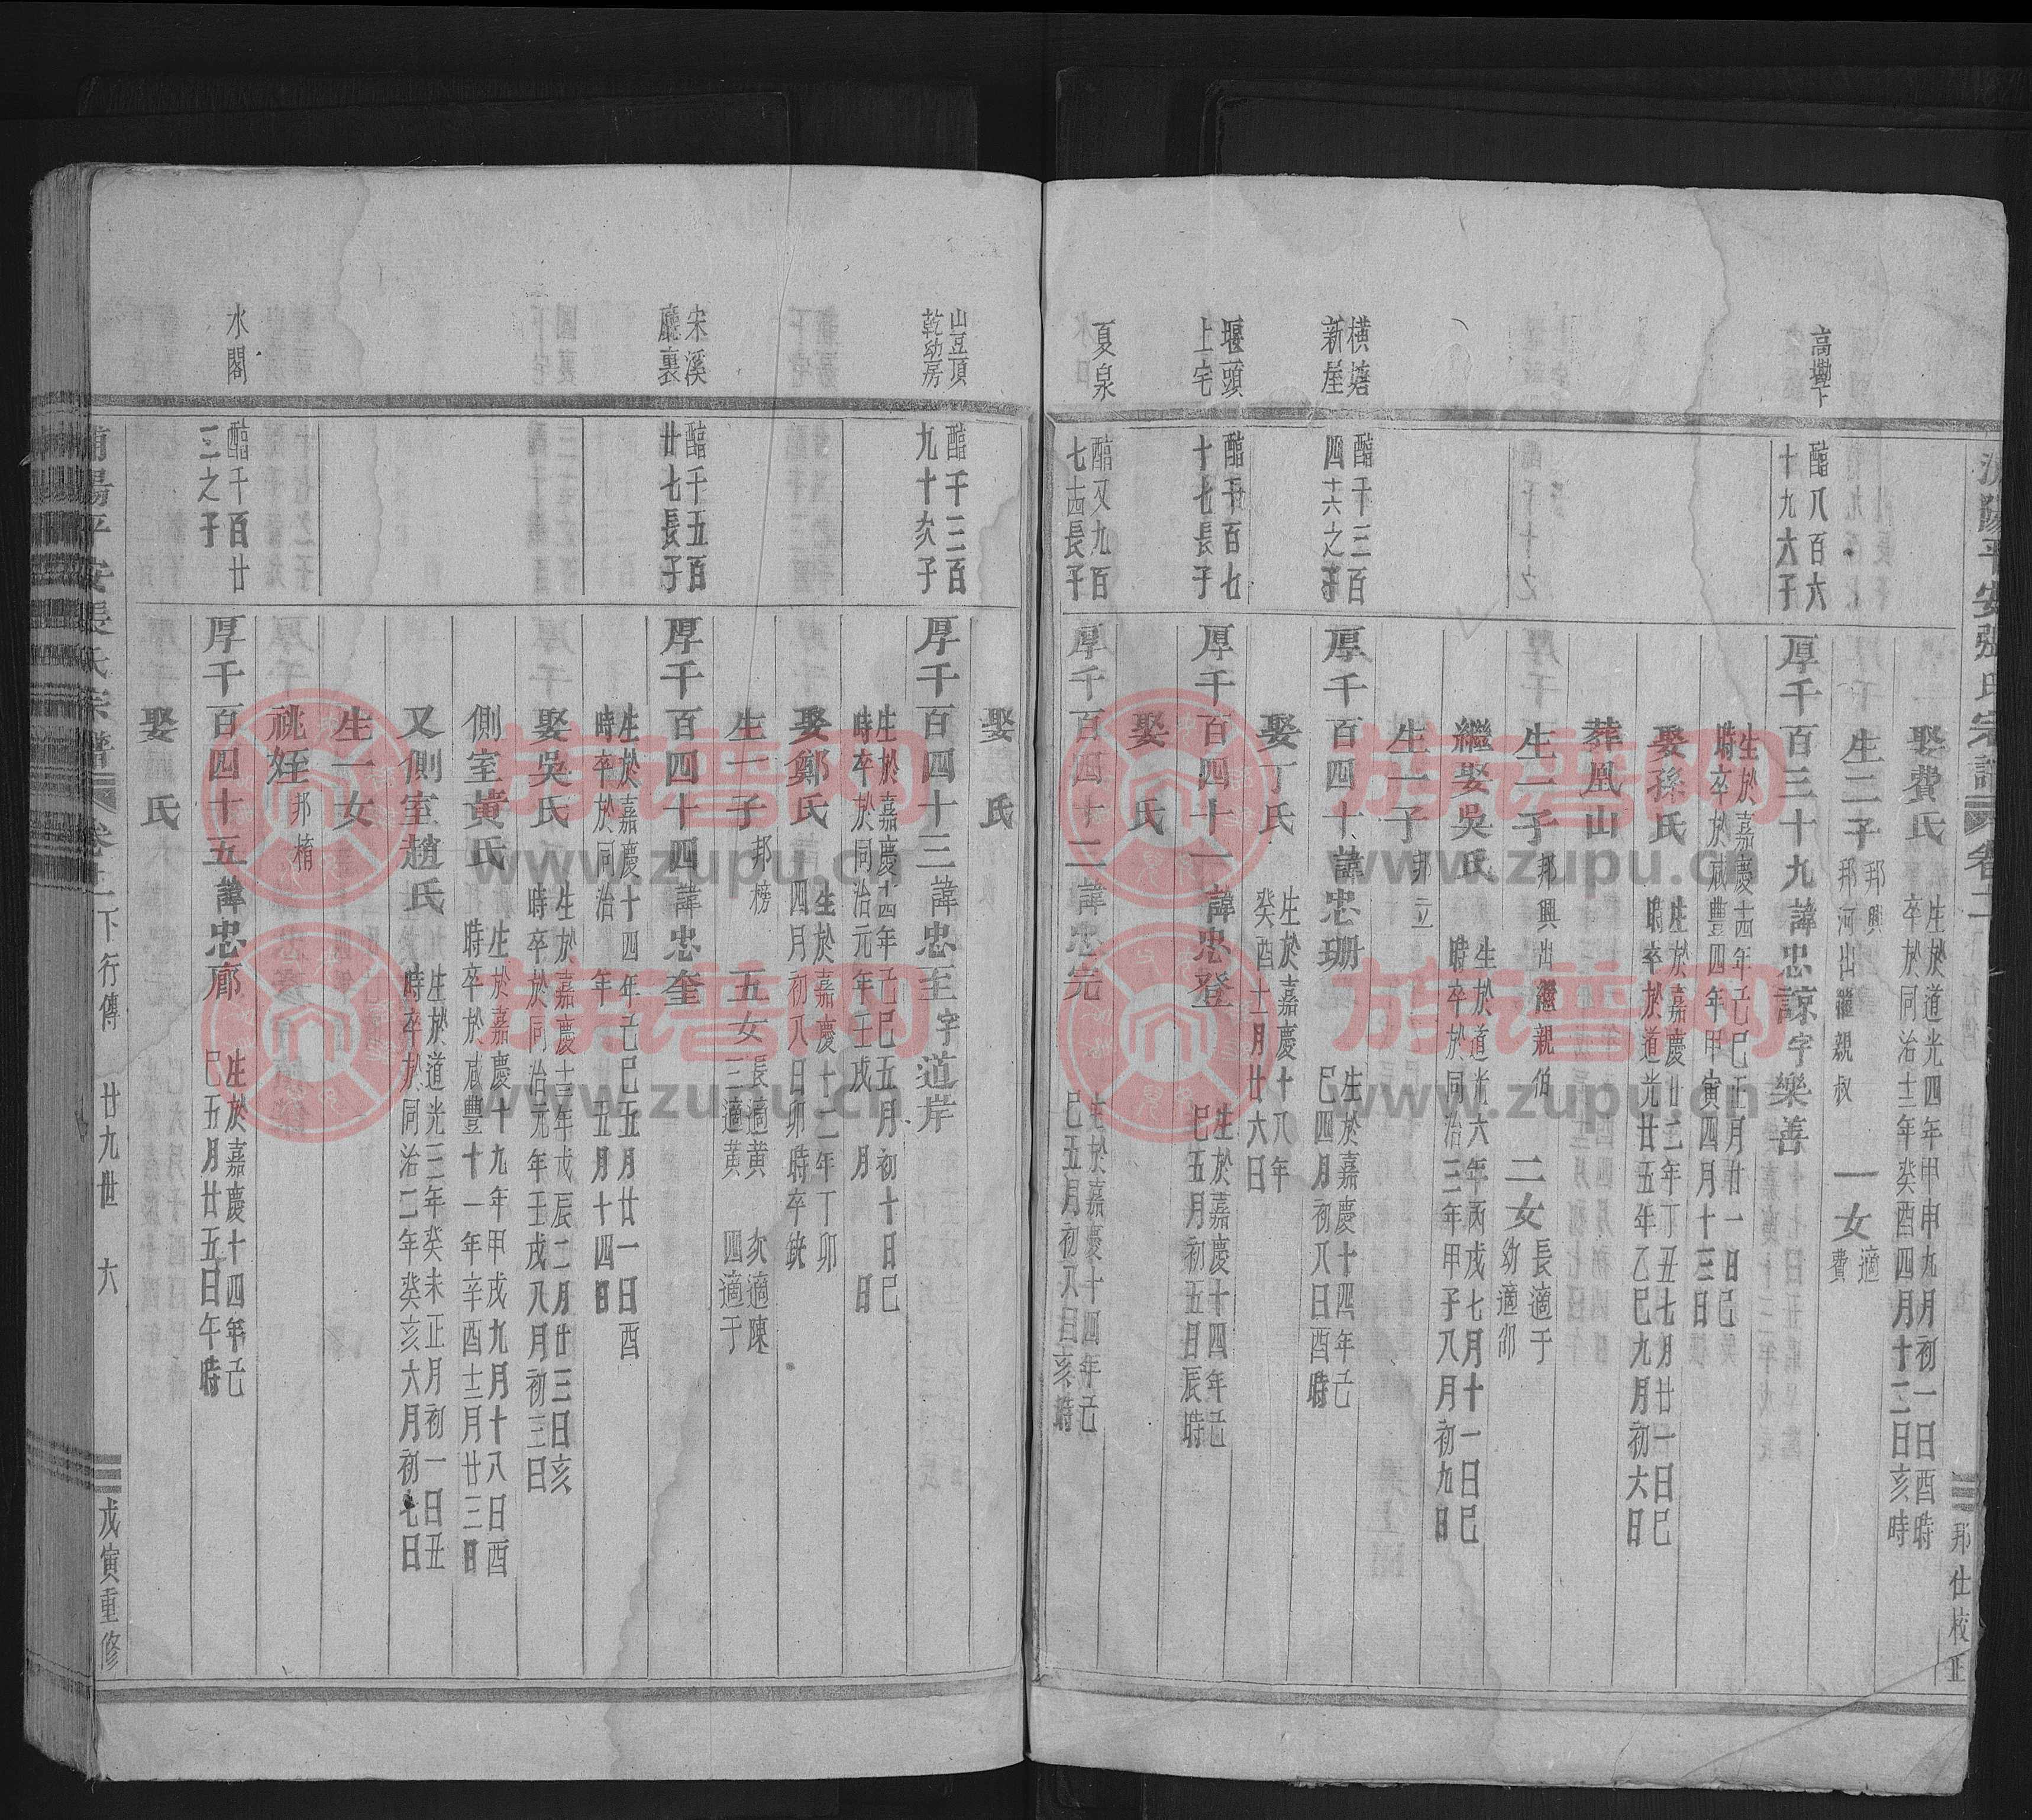 平安張氏宗譜 卷二
邦仕校正
娶費氏 生於道光四年甲申九月初一日酉時
卒於同治十二年癸酉四月十二日亥時
生二子 邦興
邦河出繼親叔 一女 適費
高墈下
酯八百六
十九六子
厚千百三十九諱忠諒字樂善
生於嘉慶十四年己巳正月廿一日巳
時卒於咸豐四年甲寅四月十三日
娶孫氏 生於嘉慶廿二年丁丑七月廿一日巳
時卒於道光廿五年乙巳九月初六日
葬凰山
生一子 邦興出繼親伯 二女 長適于
幼適邵
繼娶吳氏 生於道光六年丙戌七月十一日巳
時卒於同治三年甲子八月初九日
生一子 邦立
橫塘
新屋
酯千三百
四十六之子
厚千百四十諱忠珊 生於嘉慶十四年己
巳四月初八日酉時
娶丁氏 生於嘉慶十八年
癸酉十一月廿六日
堰頭
上宅
酯千百七
十七長子
厚千百四十一諱忠登 生於嘉慶十四年己
巳五月初五日辰時
娶 氏
夏泉
酯又九百
七十四長子
厚千百四十二諱忠完 生於嘉慶十四年己
巳五月初八日亥時
娶 氏
山豆頂
乾幼房
酯千三百
九十次子
厚千百四十三諱忠至字道岸
生於嘉慶十四年己巳五月初十日巳
時卒於同治元年壬戌 月 日
娶鄭氏 生於嘉慶十二年丁卯
四月初八日卯時卒缺
生一子 邦榜 五女 長適黃 次適陳
三適黃 四適于
宋溪
廳裏
酯千五百
廿七長子
厚千百四十四諱忠奎
生於嘉慶十四年己巳五月廿一日酉
時卒於同治 年 五月十四日
娶吳氏 生於嘉慶十三年戊辰二月廿三日亥
時卒於同治元年壬戌八月初三日
側室黃氏 生於嘉慶十九年甲戌九月十八日酉
時卒於咸豐十一年辛酉十二月廿三日
又側室趙氏 生於道光三年癸未正月初一日丑
時卒於同治二年癸亥六月初七日
生一女
祧姪 邦楕
水閣
酯千百廿
三之子
厚千百四十五諱忠廊 生於嘉慶十四年己
巳五月廿五日午時
娶 氏
平安張氏宗譜 卷二 下行傳 廿九世 六
戊寅重修